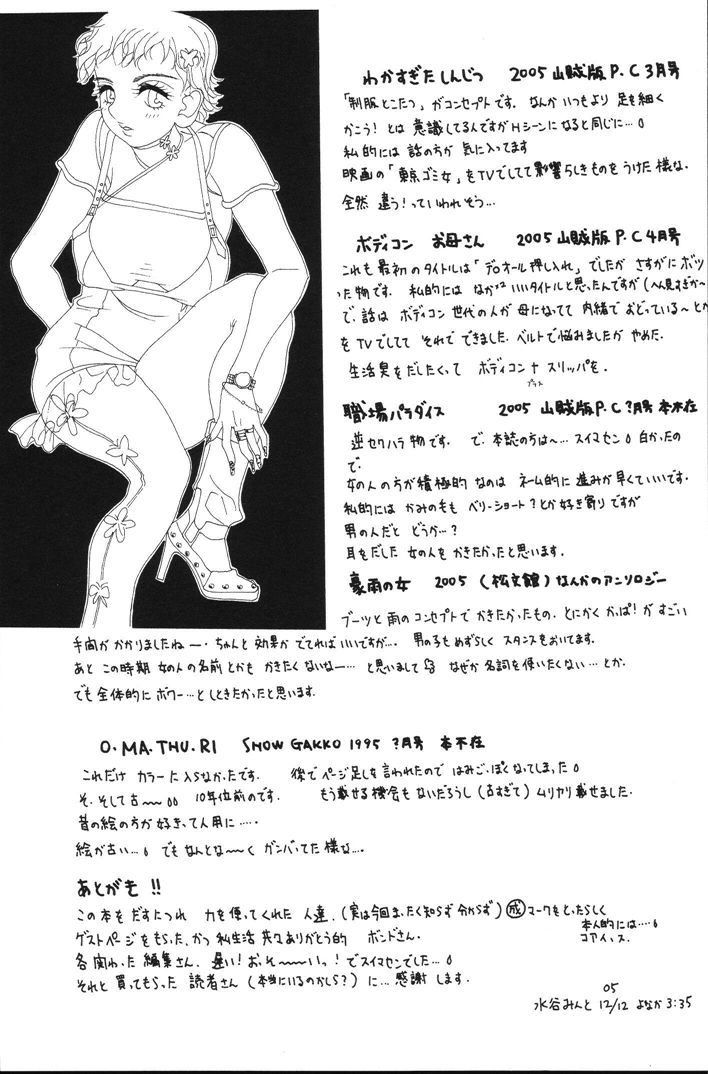 わかすぎたしんじつ 2005 山賊版 P.C 3月号
「制服とこたつ」がコンセプトです。なんかいつもより足を細く
かこう!とは意識してるんですがHシーンになると同じに…
私的には話の方が気に入ってます
映画の「東京ゴミ女」をTVでしてて影響らしきものをうけた様な.
全然違う!っていわれそう…
ボディコン お母さん 2005 山賊版 P.C 4月号
これも最初のタイトルは「デオール押し入れ」でしたがさすがにボツ
った物です. 私的にはなかなかいいタイトルと思ったんですが(へん見えすぎか〜
で、話はボディコン世代の人が母になってて内緒でおどっている〜とか
をTVでしてて それでできました.ベルトで悩みましたがやめた.
生活臭をだしたくって ボディコン+スリッパを.
プラス
職場パラダイス 2005 山賊版 P.C ?月号 本不在
逆セクハラ物です. で、本誌の方は〜…スイマセン 白かったの
で.
女の人の方が積極的なのはネーム的に進みが早くていいです.
私的にはかみの毛もベリーショート?とか好き寄りですが
男の人だとどうか…?
耳をだした女の人をかきたかったと思います.
豪雨の女 2005 (松文館) なんかのアンソロジー
ブーツと雨のコンセプトでかきたかったもの. とにかくかっぱ!がすごい
手間がかかりましたねー. ちゃんと効果がでてればいいですが…. 男の子もめずらしくスタンスもおいてます.
あと この時期 女の人の名前とかもかきたくないなー… と思いまして なぜか名詞を使いたくない…とか.
でも全体的にボワー…としときたかったと思います.
O・MA・THU・RI SHOW GAKKO 1995 ?月号 本不在
これだけカラーに入らなかったです. 後でページ足しを言われたのではみごっぽくなってしまった
そ、そして古〜〜 10年位前のです. もう載せる機会もないだろうし(古すぎて)ムリヤリ載せました.
昔の絵の方が好きって人用に……
絵が古い… でもなんとな〜〜くガンバってた様な….
あとがき !!
この本をだすにつれ 力を使ってくれた人達. (実は今回まったく知らず分からず) 成マークをとったらしく
本人的には…
コアイッス.
ゲストページをもらった.かつ私生活共々ありがとう的 ボンドさん.
各関わった編集さん. 遅い!おっそ〜〜いっ!でスイマセンでした…
それと買ってもらった読者さん(本当にいるのかしら?)に…感謝します.
05
水谷みんと 12/12 よなか 3:35